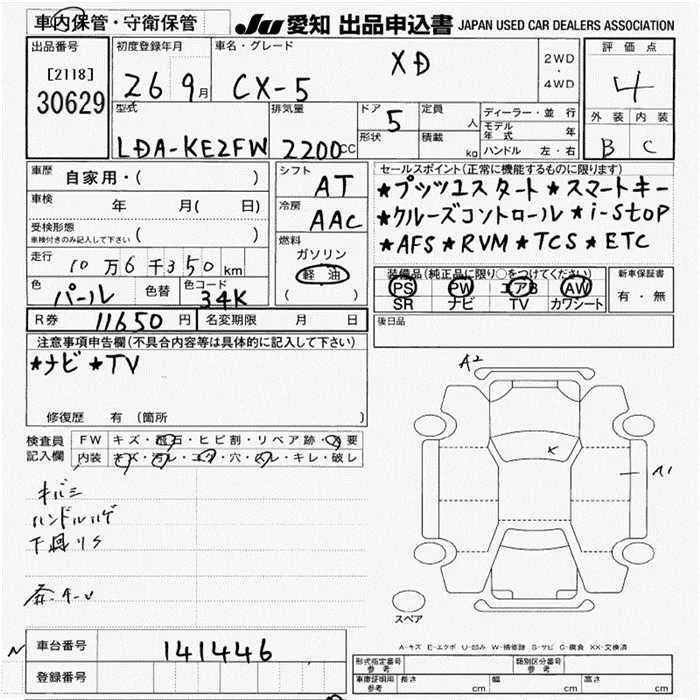 車内保管・守衛保管
JU 愛知 出品申込書 JAPAN USED CAR DEALERS ASSOCIATION
出品番号 初度登録年月 車名・グレード 評価点
[2118] 30629 26 9月 CX-5 XD 2WD・4WD 4
型式 排気量 ドア 5 定員 人 ディーラー・並行 外装 内装
モデル年式 年
LDA-KE2FW 2200cc 形状 積載 kg ハンドル 左・右 B C
車歴 自家用・( ) シフト AT セールスポイント(正常に機能するものに限ります)
車検 年 月( 日) 冷房 AAC ★プッシュスタート ★スマートキー
受検形態 車検付きのみ記入して下さい ( ) ★クルーズコントロール ★i-stop
走行 10万6千350km 燃料 ガソリン 軽油 ( ) ★AFS ★RVM ★TCS ★ETC
色 パール 色替 色コード 34K 装備品(純正品に限り○をつけてください) 新車保証書
PS PW エアB AW 有・無
SR ナビ TV カワシート
R券 11650円 名変期限 月 日 後日品
注意事項申告欄(不具合内容等は具体的に記入して下さい)
★ナビ ★TV
修復歴 有 (箇所 )
検査員記入欄 FW キズ・飛石・ヒビ割・リペア跡・交要
内装 キズ・汚レ・コゲ・穴・ハレ・キレ・破レ
A2
A1
キバミ
ハンドルハゲ
下廻りS
スペア
A-キズ E-エクボ U-凹み W-補修跡 S-サビ C-腐食 XX-交換済
車台番号 141446
登録番号
形式指定番号 参考 類別区分番号 参考
車庫証明用 参考 長さ cm 幅 cm 高さ cm